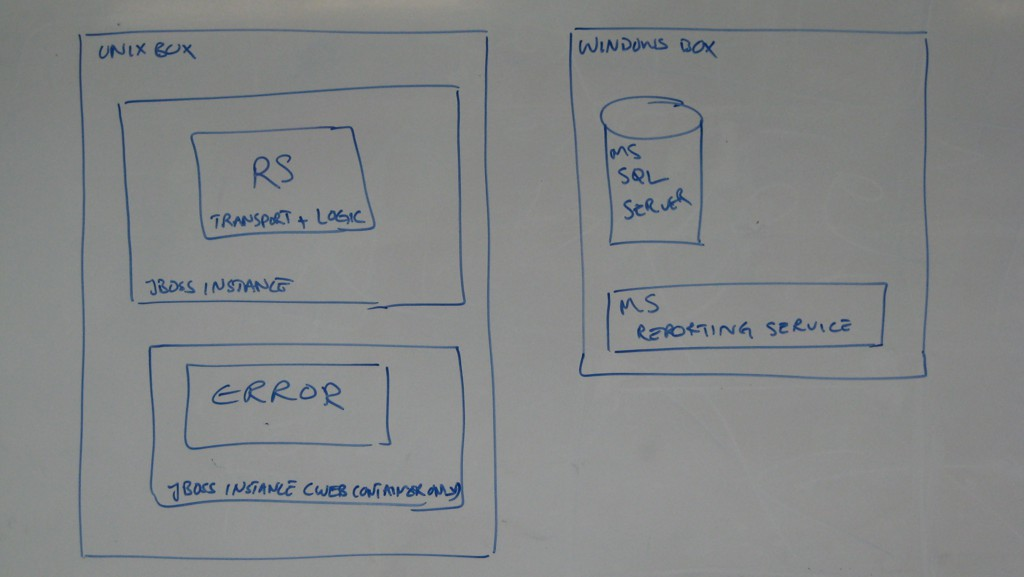 UNIX BOX
RS
TRANSPORT + LOGIC
JBOSS INSTANCE
ERROR
JBOSS INSTANCE (WEB CONTAINER ONLY)
WINDOWS BOX
MS
SQL
SERVER
MS
REPORTING SERVICE